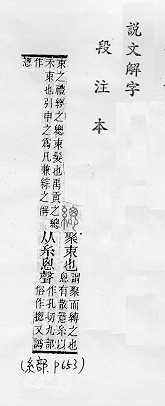 說文解字
段注本
總 聚束也 謂聚而縛之也
悤有散意糸以
束之禮經之總束髮也禹貢之總
禾束也引申之爲凡兼綜之偁
从糸悤聲 作孔切九部
俗作揔又譌
作惣
(糸部. P653)